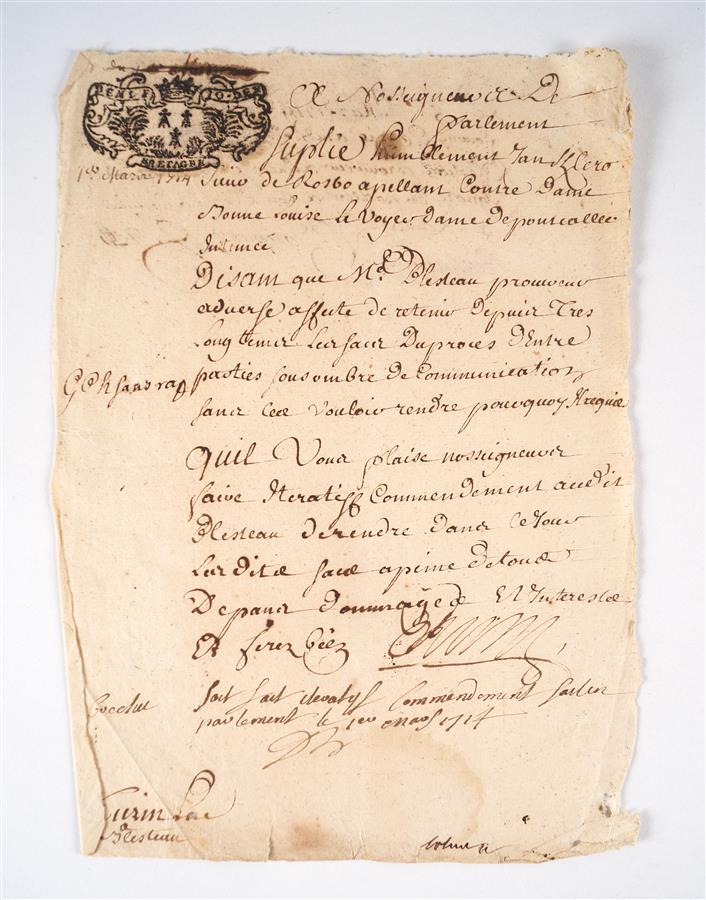 BRETAGNE
A Nosseigneurs De
parlement
Suplie humblement Jan
1er Mars 1714
Sieur de Rosbo apellant Contre Dame
Bonne Louise Le Voyer dame de pontcallec
Intimée
Disant que Me Plesteau procureur
adverse affecte de retenir depuis Tres
Long temps Les sacs Du proces d'Entre
parties sous ombre de Communication
sans Les Vouloir rendre pourquoy Il requiert
Quil Vous plaise nosseigneurs
faire Iteratiff Commendement audit
Plesteau de rendre dans Le jour
Lesdits sacs a peine de tous
Depans Dommages Et Interests
Et ferez bien
Soit fait iteratif Commendement fait en
parlement le 1er mars 1714
Plesteau